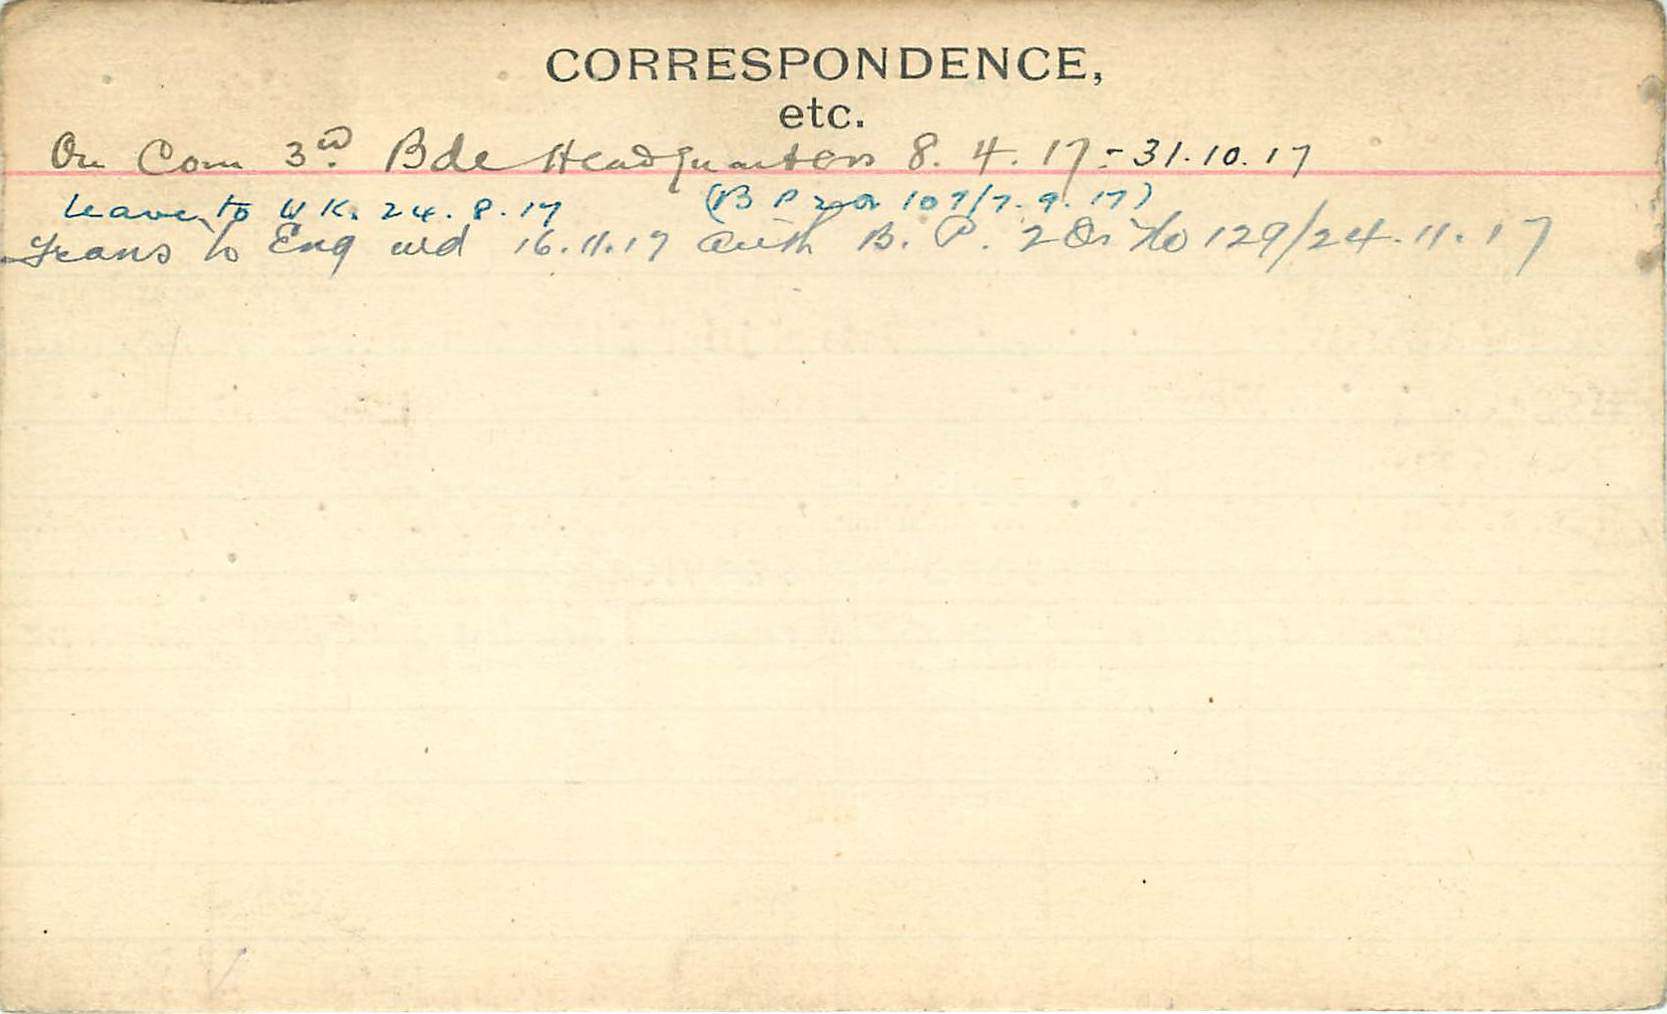 CORRESPONDENCE,
etc.
On Com 3rd Bde Headquarters 8.4.17-31.10.17
Leave to UK. 24.8.17 (B P 2 Or 107/7.9.17)
Trans to Eng wd 16.11.17 Auth B.P. 2 Or No 129/24.11.17